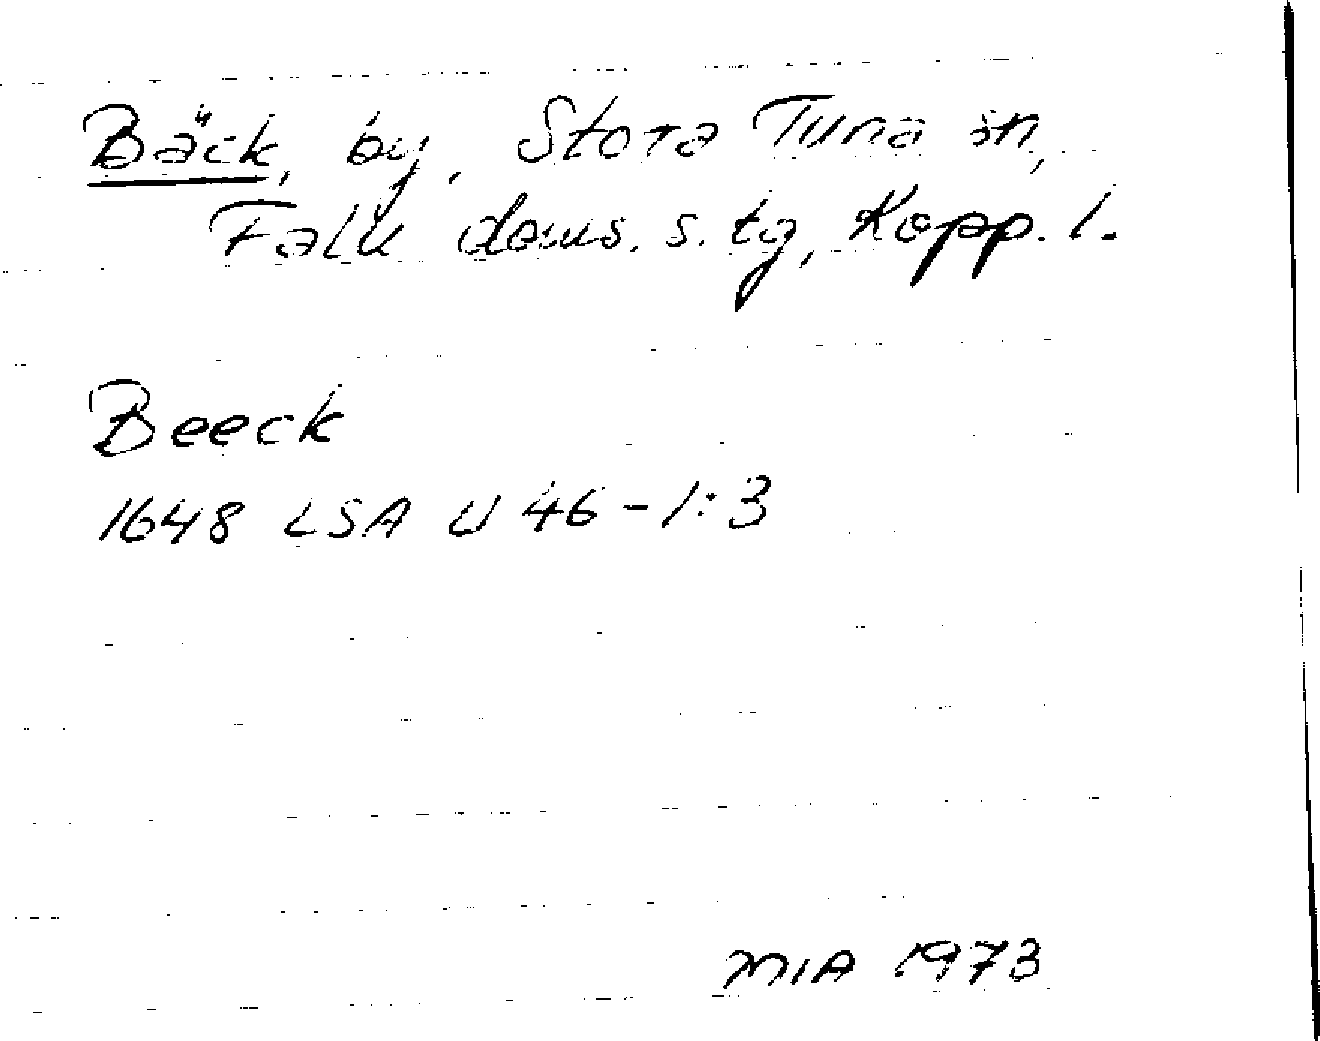 Bäck, by, Stora Tuna sn,
Falu doms. s. tg, Kopp. l.
Beeck
1648 LSA U 46-1:3
MIA 1973